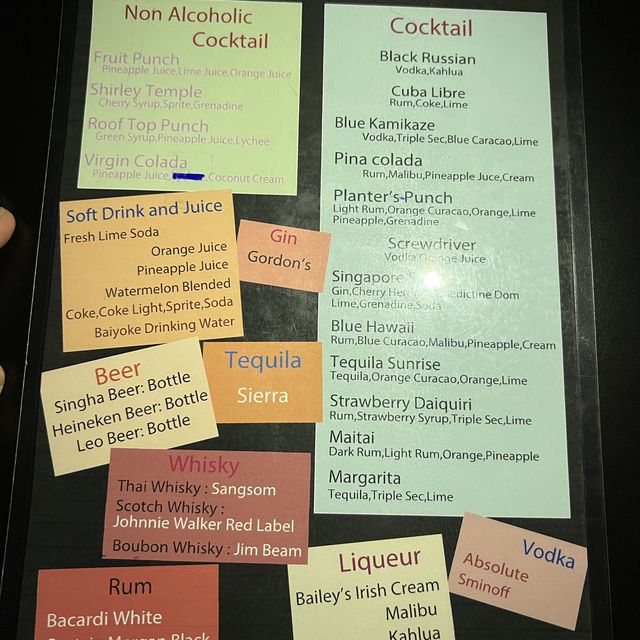 Non Alcoholic
Cocktail
Fruit Punch
Pineapple Juice,Lime Juice,Orange Juice
Shirley Temple
Cherry Syrup,Sprite,Grenadine
Roof Top Punch
Green Syrup,Pineapple Juice,Lychee
Virgin Colada
Pineapple Juice, Coconut Cream
Soft Drink and Juice
Fresh Lime Soda
Orange Juice
Pineapple Juice
Watermelon Blended
Coke,Coke Light,Sprite,Soda
Baiyoke Drinking Water
Gin
Gordon's
Beer
Singha Beer: Bottle
Heineken Beer: Bottle
Leo Beer: Bottle
Tequila
Sierra
Whisky
Thai Whisky : Sangsom
Scotch Whisky :
Johnnie Walker Red Label
Boubon Whisky : Jim Beam
Rum
Bacardi White
Captain Morgan Black
Cocktail
Black Russian
Vodka,Kahlua
Cuba Libre
Rum,Coke,Lime
Blue Kamikaze
Vodka,Triple Sec,Blue Caracao,Lime
Pina colada
Rum,Malibu,Pineapple Juce,Cream
Planter's-Punch
Light Rum,Orange Curacao,Orange,Lime
Pineapple,Grenadine
Screwdriver
Vodka,Orange Juice
Singapore
Gin,Cherry Dom
Lime,Grenadine,Soda
Blue Hawaii
Rum,Blue Curacao,Malibu,Pineapple,Cream
Tequila Sunrise
Tequila,Orange Curacao,Orange,Lime
Strawberry Daiquiri
Rum,Strawberry Syrup,Triple Sec,Lime
Maitai
Dark Rum,Light Rum,Orange,Pineapple
Margarita
Tequila,Triple Sec,Lime
Liqueur
Bailey's Irish Cream
Malibu
Kahlua
Vodka
Absolute
Sminoff